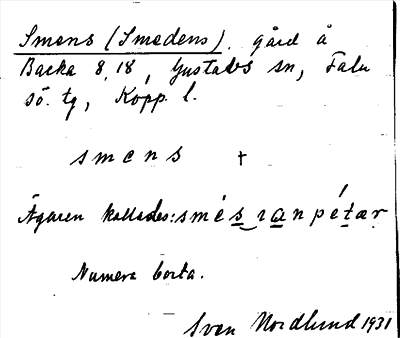 Smens (Smedens), gård å
Backa 8, 18, Gustafs sn, Falu
sö. tg, Kopp. l.
smens †
Ägaren kallades: smés ɿanpétar
Numera borta.
Sven Nordlund 1931